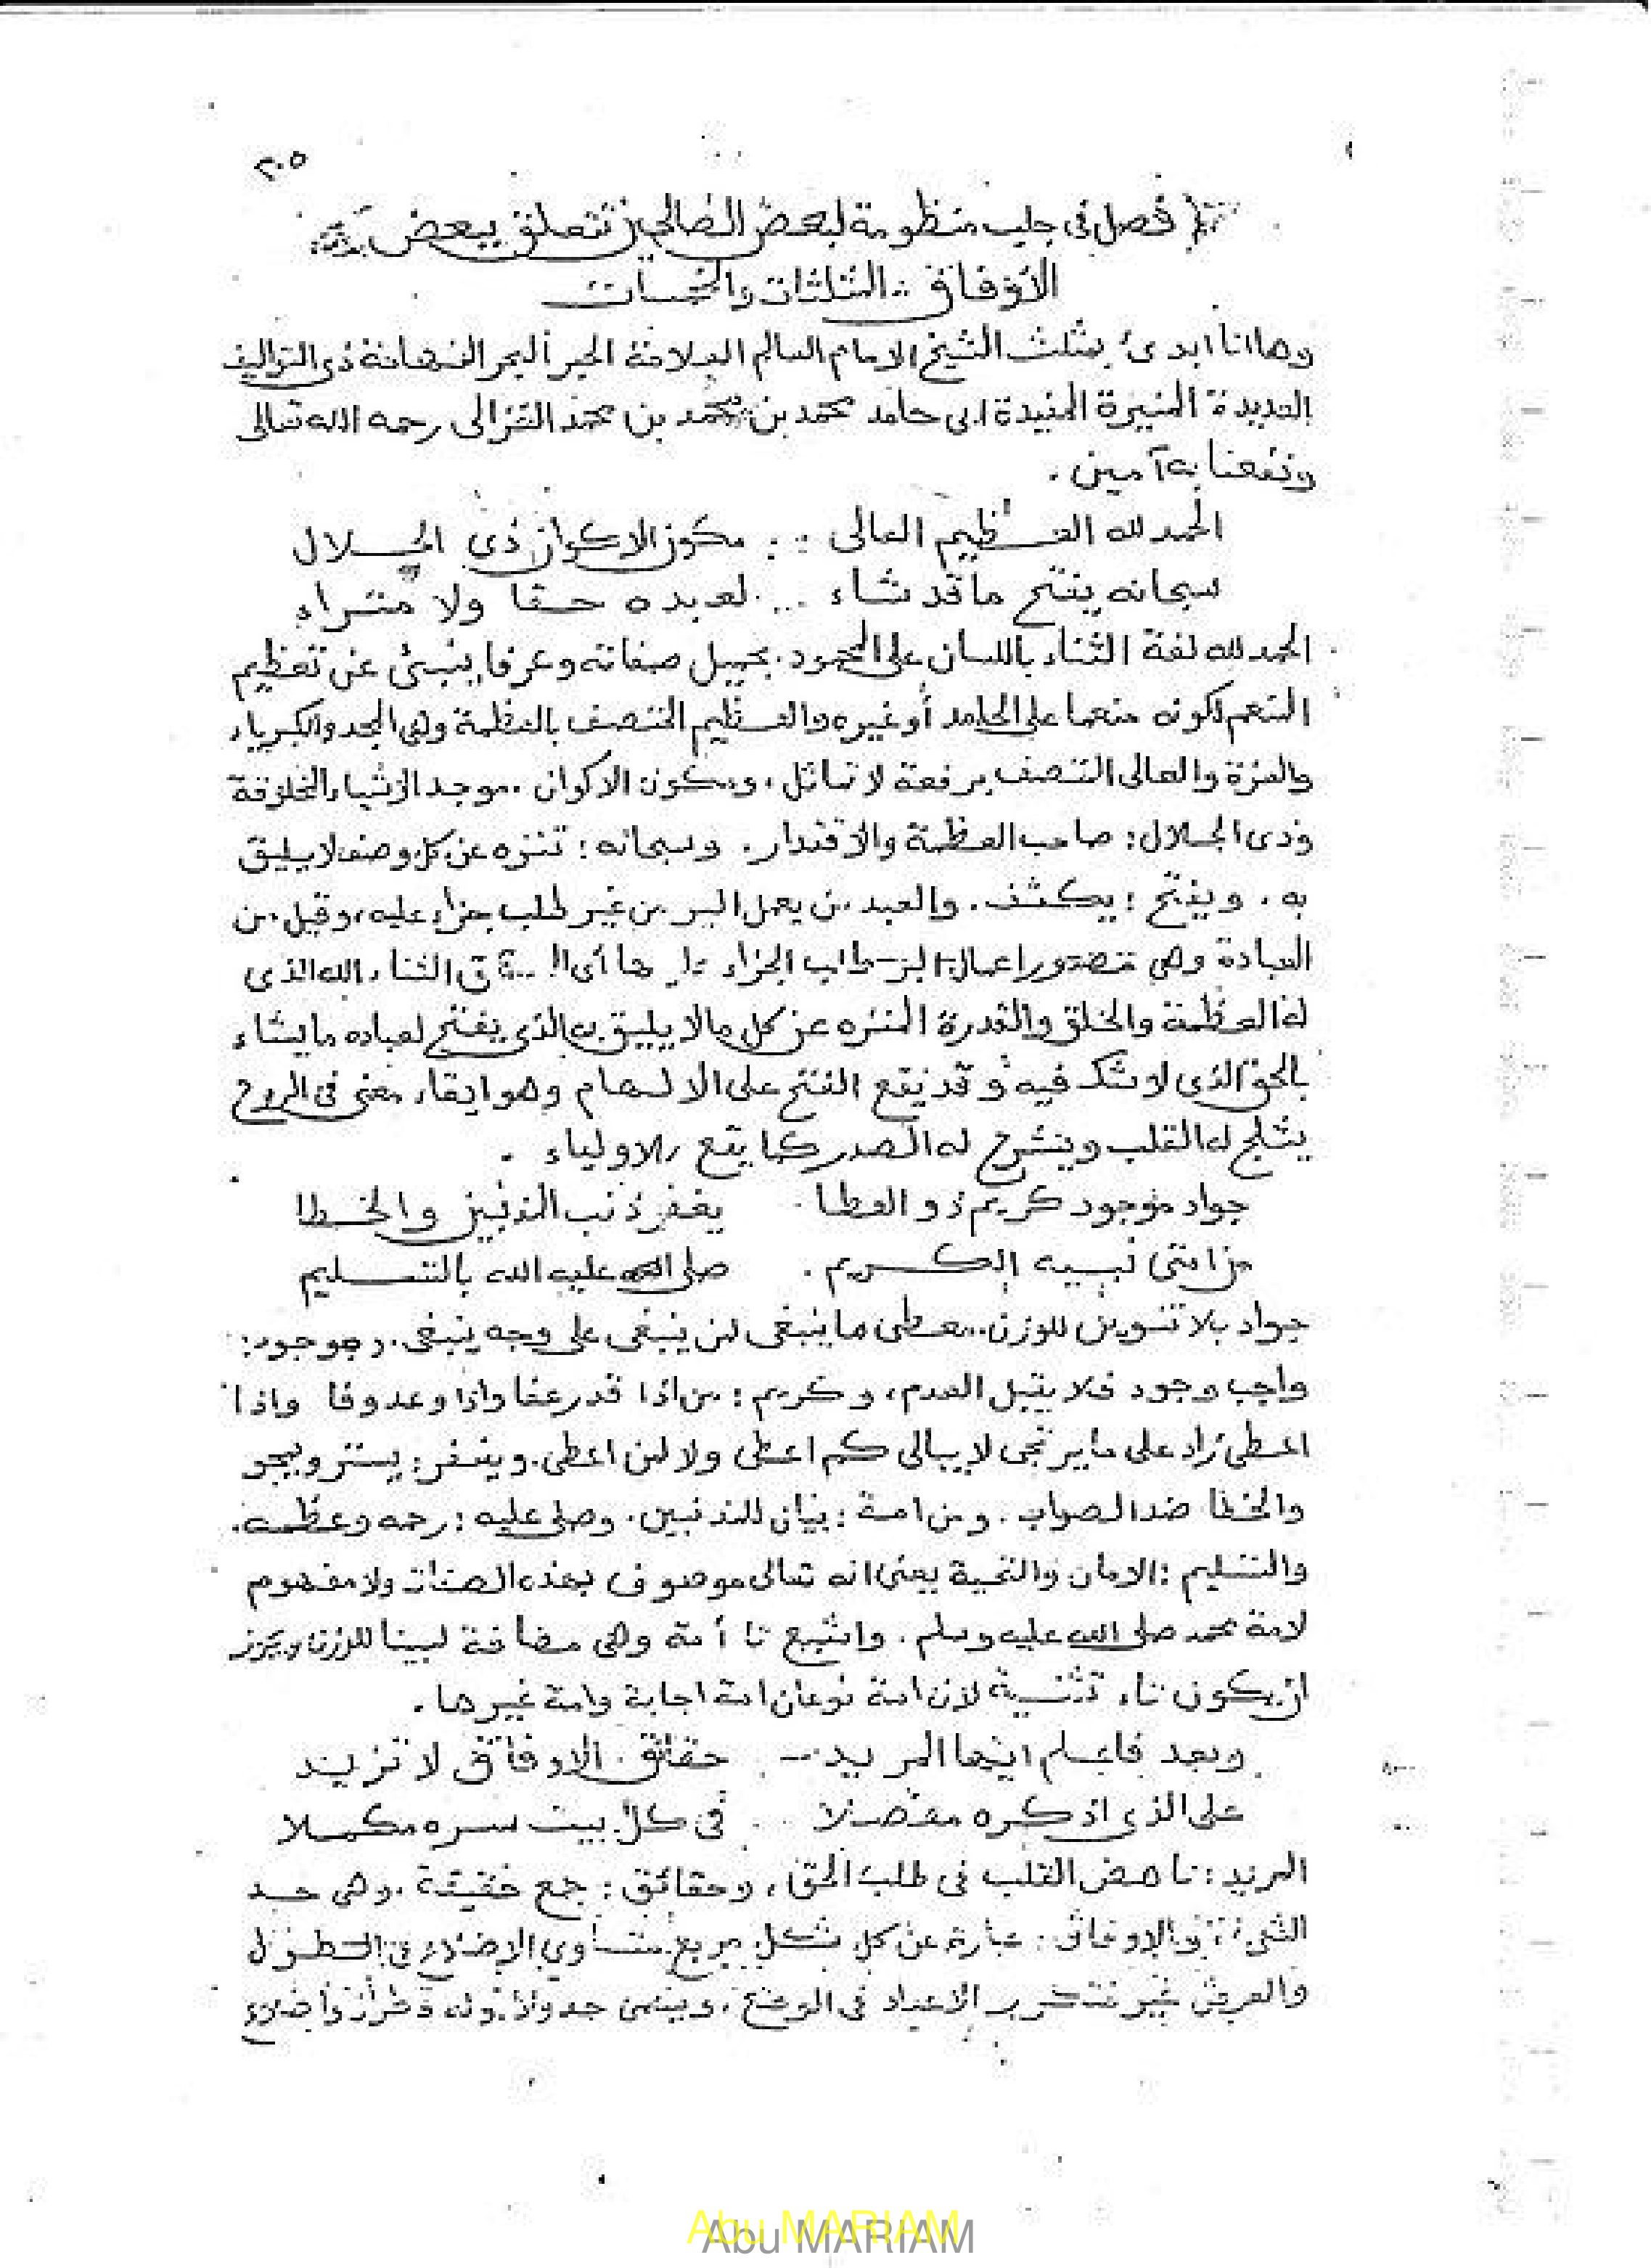 ٣٠٥
فصل في جلب منظومة لبعض الصالحين تتعلق ببعض
الأوفاق المثلثات والمخمسات
وها انا ابدئ بمثلث الشيخ الامام العالم العلامة الحبر البحر الفهامة ذى التواليف
العديدة المنيرة المفيدة ابى حامد محمد بن محمد بن محمد الغزالى رحمه الله تعالى
ونفعنا به آمين .
الحمد لله العظيم العالى .. مكون الاكوان ذى الجلال
سبحانه يفتح ما قد شاء ... لعبده حقا ولا مراء
الحمد لله لغة الثناء باللسان على المحمود بجميل صفاته وعرفا ينبئ عن تعظيم
المنعم لكونه منعما على الحامد أو غيره والعظيم المتصف بالعظمة وهى المجد والكبرياء
والعزة والعالى المتصف برفعة لا تماثل ، ومكون الاكوان . موجد الاشياء المخلوقة
وذى الجلال : صاحب العظمة والاقتدار . وسبحانه : تنزه عن كل وصف لا يليق
به . ويفتح : يكشف . والعبد من يعمل البر من غير طلب جزاء عليه ، وقيل من
العبادة وهى اعمال البر طالب الجزاء الثناء الله الذى
له العظمة والخلق والقدرة المنزه عن كل ما لا يليق به الذى يفتح لعباده ما يشاء
بالحق الذى لا شك فيه وقد يقع الفتح على الالهام وهو ايقاء معنى فى الروح
يثلج له القلب وينشرح له الصدر كما يقع للاولياء .
جواد موجود كريم ذو العطا يغفر ذنب المذنبين والخطا
من امتى نبيه الكريم . صلى الله عليه الله بالتسليم
جواد بلا تنوين للوزن .. معطى ما ينبغى لمن ينبغى على وجه ينبغى . وموجود :
واجب وجود فلا يقبل العدم ، وكريم : من اذا قدر عفا واذا وعد وفا واذا
اعطى زاد على ما يرتجى لا يبالى كم اعطى ولا لمن اعطى . ويغفر : يستر ويمحو
والخطا ضد الصواب . ومن امة : بيان للمذنبين . وصلى عليه : رحمه وعظمه .
والتسليم : الامان والتحية يعنى انه تعالى موصوف بهذه الصفات ولا مفهوم
لامة محمد صلى الله عليه وسلم . واشبع تا أمة وهى مضافة لبينا للوزن ويجوز
ان يكون تاء تثنية لان امة نوعان امة اجابة وامة غيرها .
وبعد فاعلم ايها المريد حقائق الاوفاق لا تزيد
على الذى اذكره مفصلا فى كل بيت سره مكملا
المريد : ناهض القلب فى طلب الحق ، وحقائق : جمع حقيقة . وهى حد
الشىء والاوفاق : عبارة عن كل شكل مربع متساوي الاضلاع فى الطول
والعرض غير متكرر الاعداد فى الوضع ، ويسمى جدولا وله قطران وأضلاع
Abu MARIAM